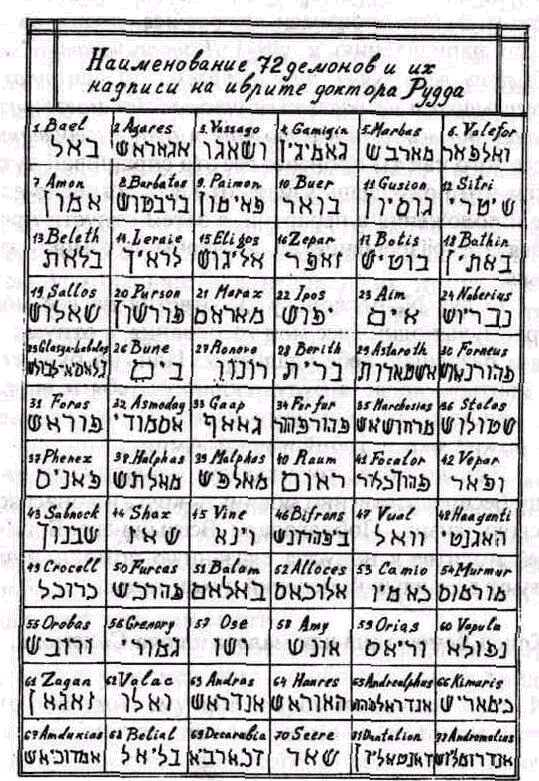 Наименование 72 демонов и их
надписи на иврите доктора Рудда
1. Bael
באל
2. Agares
אגאראש
3. Vassago
ושאגו
4. Gamigin
גאמיגין
5. Marbas
מארבש
6. Valefor
ואלפאר
7 Amon
אמון
8. Barbatos
ברבטוש
9. Paimon
פאימון
10 Buer
בואר
11 Gusion
גוסיון
12 Sitri
שיטרי
13 Beleth
בלאת
14. Leraie
לראיך
15 Eligos
אליגוש
16 Zepar
זאפר
17 Botis
בוטיש
18 Bathin
באתין
19. Sallos
שאלוש
20 Purson
פורשון
21 Marax
מאראם
22 Ipos
יפוש
23 Aim
אים
24 Naberius
נבריוש
25 Glasya-Labolas
26 Bune
בים
27 Ronove
רונוו
28 Berith
ברית
29 Astaroth
אשטארות
30 Forneus
פהורנאוש
31 Foras
פוראש
32 Asmoday
אסמודי
33 Gaap
גאאף
34 Furfur
פהורפהור
35 Marchosias
מרחושאש
36 Stolos
שטולוש
37 Phenex
פאנים
38 Halphas
מאלתש
39 Malphas
מאלפש
40 Raum
ראום
41 Focalor
42 Vepar
ופאר
43 Sabnock
שבנוך
44 Shax
שאץ
45 Vine
וינא
46 Bifrons
ביפהרונש
47 Vual
וואל
48 Haagenti
האגנטי
49 Crocell
כרוכל
50 Furcas
פהורכש
51 Balam
באלאם
52 Alloces
אלוכאס
53 Camio
כאמיו
54 Murmur
מורמוס
55 Orobas
ורובש
56 Gremory
גמורי
57 Ose
ושו
58 Amy
אונש
59 Orias
וריאס
60 Vapula
נפולא
61 Zagan
זאגאן
62 Valac
ואלו
63 Andras
אנדראש
64 Haures
האוראש
65 Andrealphus
66 Kimaris
כימאריש
67 Amduxias
אמדוכיאש
68 Belial
בליאל
69 Decarabia
דכארביא
70 Seere
שאר
71 Dantalion
דאנטאליון
72 Andromalius
אנדרומליוש